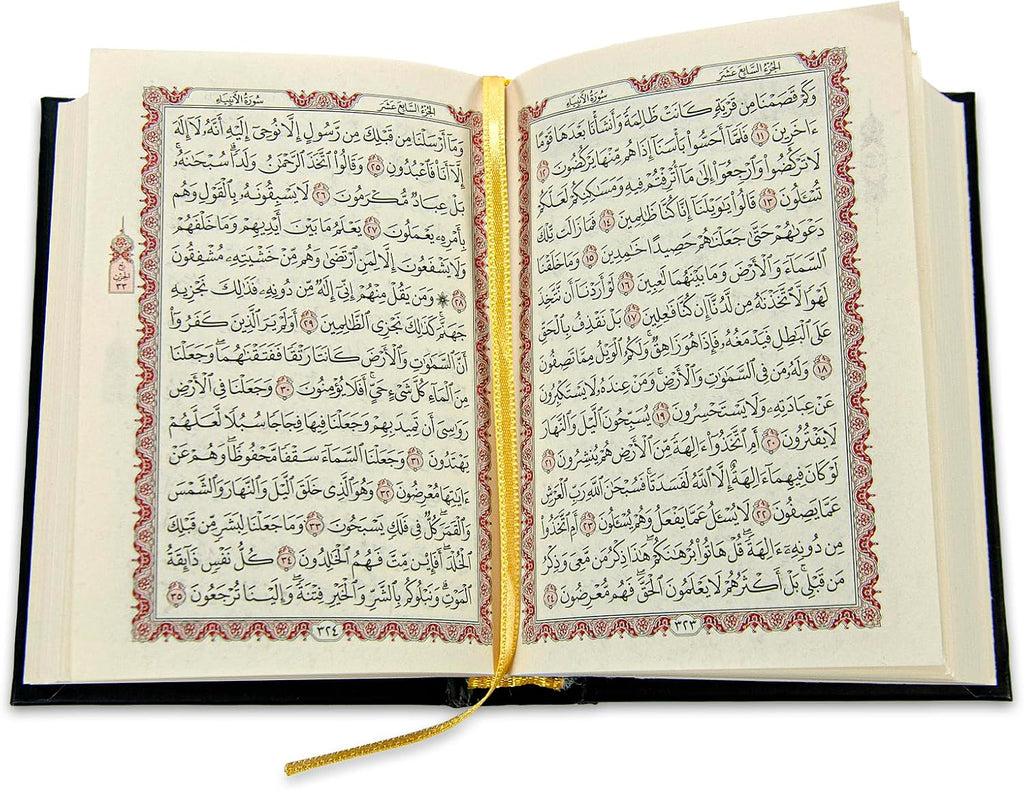 الجزء السابع عشر
سورة الأنبياء
وَكَمْ قَصَمْنَا مِن قَرْيَةٍ كَانَتْ ظَالِمَةً وَأَنشَأْنَا بَعْدَهَا قَوْمًا
ءَاخَرِينَ ١١ فَلَمَّآ أَحَسُّوا۟ بَأْسَنَآ إِذَا هُم مِّنْهَا يَرْكُضُونَ ١٢
لَا تَرْكُضُوا۟ وَٱرْجِعُوٓا۟ إِلَىٰ مَآ أُتْرِفْتُمْ فِيهِ وَمَسَـٰكِنِكُمْ لَعَلَّكُمْ
تُسْـَٔلُونَ ١٣ قَالُوا۟ يَـٰوَيْلَنَآ إِنَّا كُنَّا ظَـٰلِمِينَ ١٤ فَمَا زَالَت تِّلْكَ
دَعْوَىٰهُمْ حَتَّىٰ جَعَلْنَـٰهُمْ حَصِيدًا خَـٰمِدِينَ ١٥ وَمَا خَلَقْنَا
ٱلسَّمَآءَ وَٱلْأَرْضَ وَمَا بَيْنَهُمَا لَـٰعِبِينَ ١٦ لَوْ أَرَدْنَآ أَن نَّتَّخِذَ
لَهْوًا لَّٱتَّخَذْنَـٰهُ مِن لَّدُنَّآ إِن كُنَّا فَـٰعِلِينَ ١٧ بَلْ نَقْذِفُ بِٱلْحَقِّ
عَلَى ٱلْبَـٰطِلِ فَيَدْمَغُهُۥ فَإِذَا هُوَ زَاهِقٌ ۚ وَلَكُمُ ٱلْوَيْلُ مِمَّا تَصِفُونَ
١٨ وَلَهُۥ مَن فِى ٱلسَّمَـٰوَٰتِ وَٱلْأَرْضِ ۚ وَمَنْ عِندَهُۥ لَا يَسْتَكْبِرُونَ
عَنْ عِبَادَتِهِۦ وَلَا يَسْتَحْسِرُونَ ١٩ يُسَبِّحُونَ ٱلَّيْلَ وَٱلنَّهَارَ
لَا يَفْتُرُونَ ٢٠ أَمِ ٱتَّخَذُوٓا۟ ءَالِهَةً مِّنَ ٱلْأَرْضِ هُمْ يُنشِرُونَ ٢١
لَوْ كَانَ فِيهِمَآ ءَالِهَةٌ إِلَّا ٱللَّهُ لَفَسَدَتَا ۚ فَسُبْحَـٰنَ ٱللَّهِ رَبِّ ٱلْعَرْشِ
عَمَّا يَصِفُونَ ٢٢ لَا يُسْـَٔلُ عَمَّا يَفْعَلُ وَهُمْ يُسْـَٔلُونَ ٢٣ أَمِ ٱتَّخَذُوا۟
مِن دُونِهِۦٓ ءَالِهَةً ۖ قُلْ هَاتُوا۟ بُرْهَـٰنَكُمْ ۖ هَـٰذَا ذِكْرُ مَن مَّعِىَ وَذِكْرُ
مَن قَبْلِى ۗ بَلْ أَكْثَرُهُمْ لَا يَعْلَمُونَ ٱلْحَقَّ ۖ فَهُم مُّعْرِضُونَ ٢٤
٣٢٣
الجزء السابع عشر
سورة الأنبياء
وَمَآ أَرْسَلْنَا مِن قَبْلِكَ مِن رَّسُولٍ إِلَّا نُوحِىٓ إِلَيْهِ أَنَّهُۥ لَآ إِلَـٰهَ
إِلَّآ أَنَا۠ فَٱعْبُدُونِ ٢٥ وَقَالُوا۟ ٱتَّخَذَ ٱلرَّحْمَـٰنُ وَلَدًا ۗ سُبْحَـٰنَهُۥ ۚ
بَلْ عِبَادٌ مُّكْرَمُونَ ٢٦ لَا يَسْبِقُونَهُۥ بِٱلْقَوْلِ وَهُم
بِأَمْرِهِۦ يَعْمَلُونَ ٢٧ يَعْلَمُ مَا بَيْنَ أَيْدِيهِمْ وَمَا خَلْفَهُمْ
وَلَا يَشْفَعُونَ إِلَّا لِمَنِ ٱرْتَضَىٰ وَهُم مِّنْ خَشْيَتِهِۦ مُشْفِقُونَ
٢٨ ۞ وَمَن يَقُلْ مِنْهُمْ إِنِّىٓ إِلَـٰهٌ مِّن دُونِهِۦ فَذَٰلِكَ نَجْزِيهِ
جَهَنَّمَ ۚ كَذَٰلِكَ نَجْزِى ٱلظَّـٰلِمِينَ ٢٩ أَوَلَمْ يَرَ ٱلَّذِينَ كَفَرُوٓا۟
أَنَّ ٱلسَّمَـٰوَٰتِ وَٱلْأَرْضَ كَانَتَا رَتْقًا فَفَتَقْنَـٰهُمَا ۖ وَجَعَلْنَا
مِنَ ٱلْمَآءِ كُلَّ شَىْءٍ حَىٍّ ۖ أَفَلَا يُؤْمِنُونَ ٣٠ وَجَعَلْنَا فِى ٱلْأَرْضِ
رَوَٰسِىَ أَن تَمِيدَ بِهِمْ وَجَعَلْنَا فِيهَا فِجَاجًا سُبُلًا لَّعَلَّهُمْ
يَهْتَدُونَ ٣١ وَجَعَلْنَا ٱلسَّمَآءَ سَقْفًا مَّحْفُوظًا ۖ وَهُمْ عَنْ
ءَايَـٰتِهَا مُعْرِضُونَ ٣٢ وَهُوَ ٱلَّذِى خَلَقَ ٱلَّيْلَ وَٱلنَّهَارَ وَٱلشَّمْسَ
وَٱلْقَمَرَ ۖ كُلٌّ فِى فَلَكٍ يَسْبَحُونَ ٣٣ وَمَا جَعَلْنَا لِبَشَرٍ مِّن قَبْلِكَ
ٱلْخُلْدَ ۖ أَفَإِي۟ن مِّتَّ فَهُمُ ٱلْخَـٰلِدُونَ ٣٤ كُلُّ نَفْسٍ ذَآئِقَةُ
ٱلْمَوْتِ ۗ وَنَبْلُوكُم بِٱلشَّرِّ وَٱلْخَيْرِ فِتْنَةً ۖ وَإِلَيْنَا تُرْجَعُونَ ٣٥
٣٢٤
الحزب
٣٣